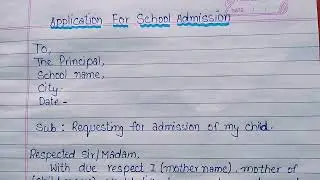 Application For School Admission
DATE
To,
The Principal,
School name,
City-
Date-
Sub: Requesting for admission of my child.
Respected Sir/Madam,
With due respect I (mother name), mother of